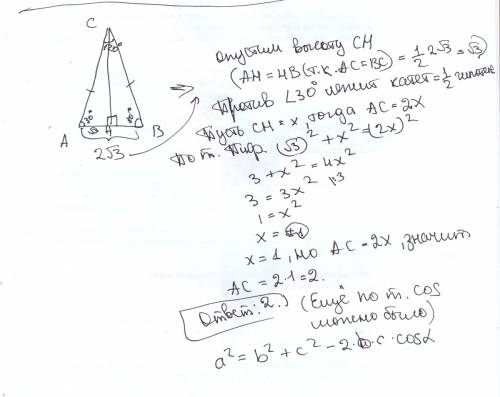 C
120°
30°
30°
√3
A
H
B
2√3
опустим высоту CH
(AH = HB (т.к. AC = BC) = 1/2 2√3 = √3)
Против ∠30° лежит катет = 1/2 гипотен
Пусть CH = x, тогда AC = 2x
По т. Пиф. (√3)² + x² = (2x)²
3 + x² = 4x²
3 = 3x² |:3
1 = x²
x = ±1
x = 1, но AC = 2x, значит
AC = 2·1 = 2.
Ответ: 2.
(Ещё по т. cos
можно было)
a² = b² + c² - 2·b·c·cosα